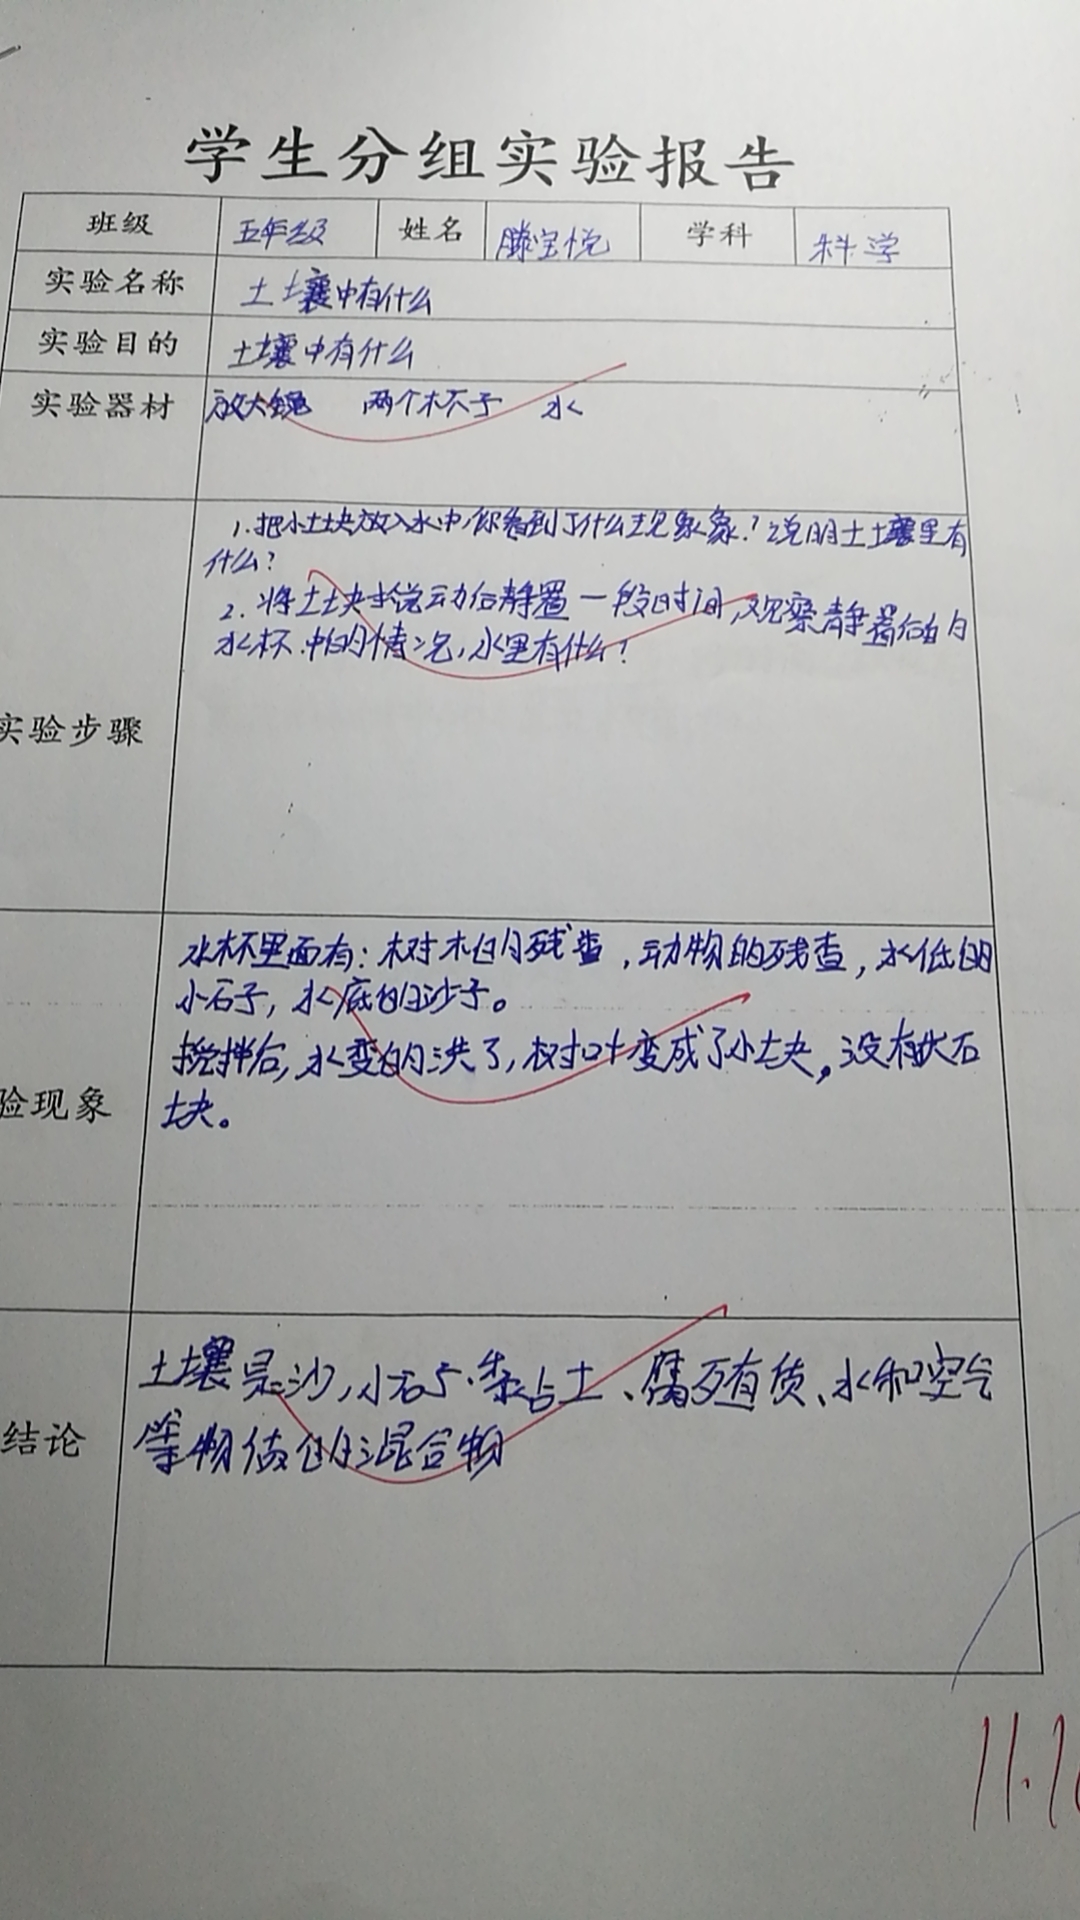 学生分组实验报告
班级 五年级 姓名 滕宝悦 学科 科学
实验名称 土壤中有什么
实验目的 土壤中有什么
实验器材 放大镜 两个杯子 水
1.把小土块放入水中,你看到了什么现象?说明土壤里有
什么?
2.将土块搅动后静置一段时间,观察静置后的
水杯中的情况,水里有什么?
实验步骤
水杯里面有:树木的残查,动物的残查,水低的
小石子,水底的沙子。
搅拌后,水变的洪了,树叶变成了小土块,没有大石
块。
验现象
土壤是沙,小石子、粘土、腐死有质、水和空气
等物做的混合物
结论
11.1